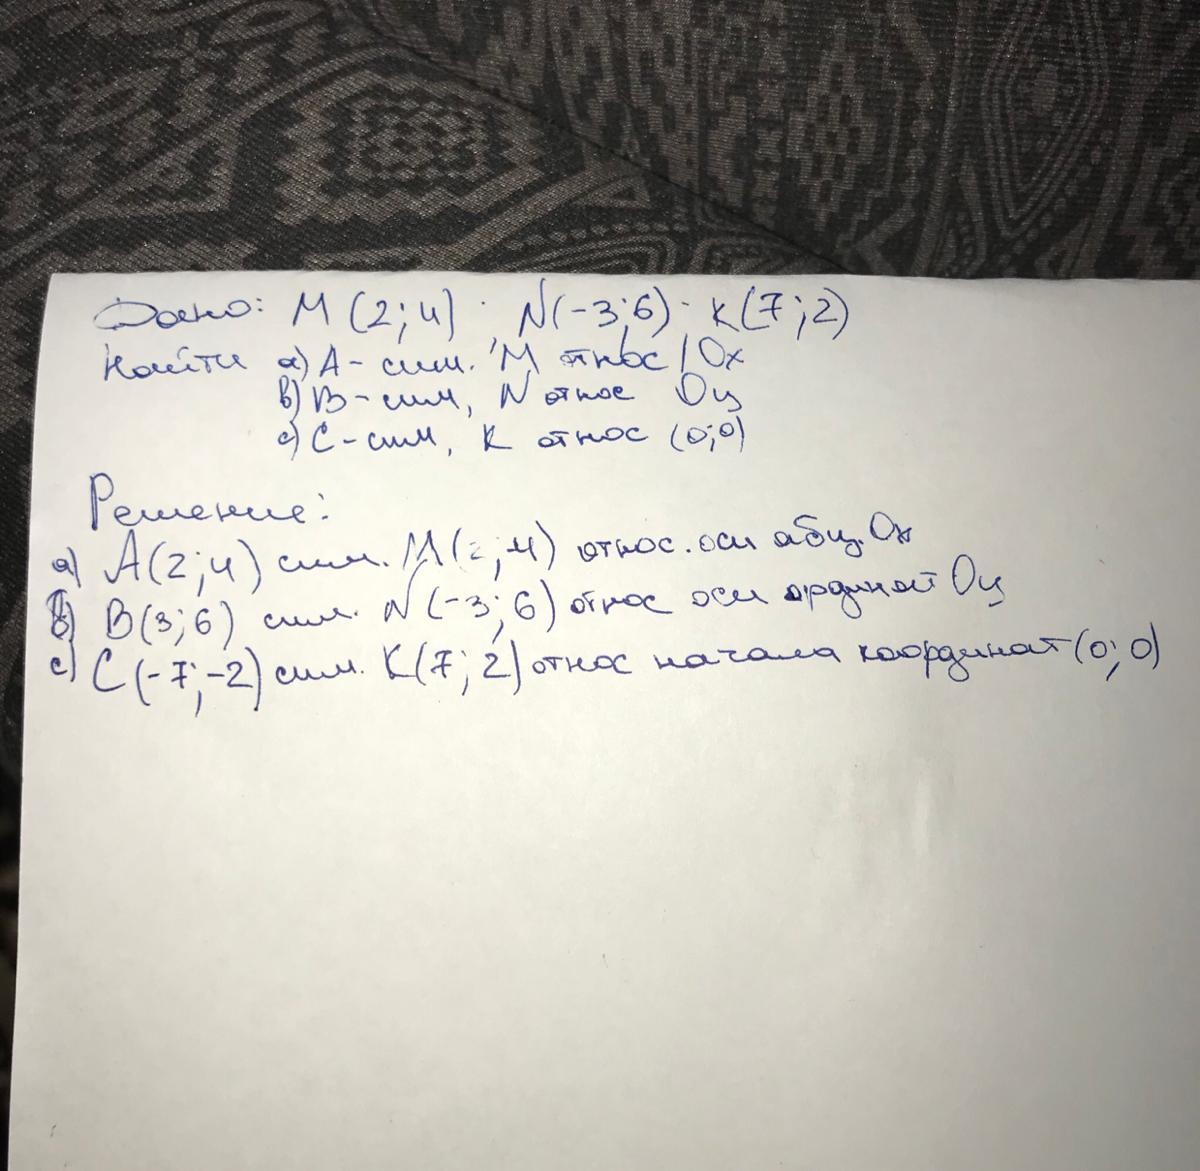 Дано: М (2; 4) · N(-3; 6) · К(7; 2)
Найти а) А - сим. М относ Ох
в) В - сим, N относ Оу
с) С - сим, К относ (0; 0)
Решение:
а) А(2; 4) сим. М(2; 4) относ. оси абц. Ох
в) В(3; 6) сим. N(-3; 6) относ оси ординат Оу
с) С(-7; -2) сим. К(7; 2) относ начала координат (0; 0)